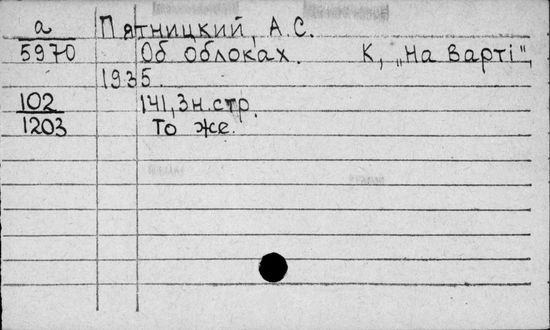 а Пятницкий, А.С.
5970 Об облоках. К, „На варті",
1935.
102 141, 3 н. стр.
1203 То же.